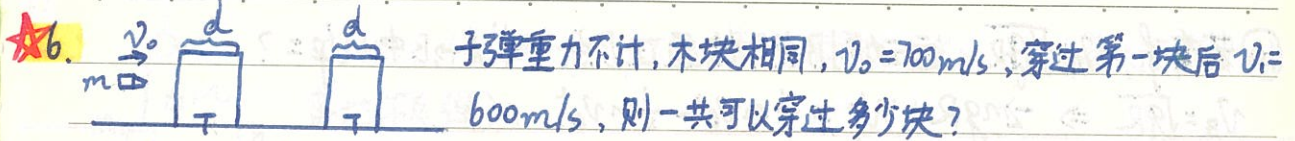 ☆6. v₀ d d 子弹重力不计,木块相同,v₀=700m/s,穿过第一块后v₁=
m 600m/s,则一共可以穿过多少块?